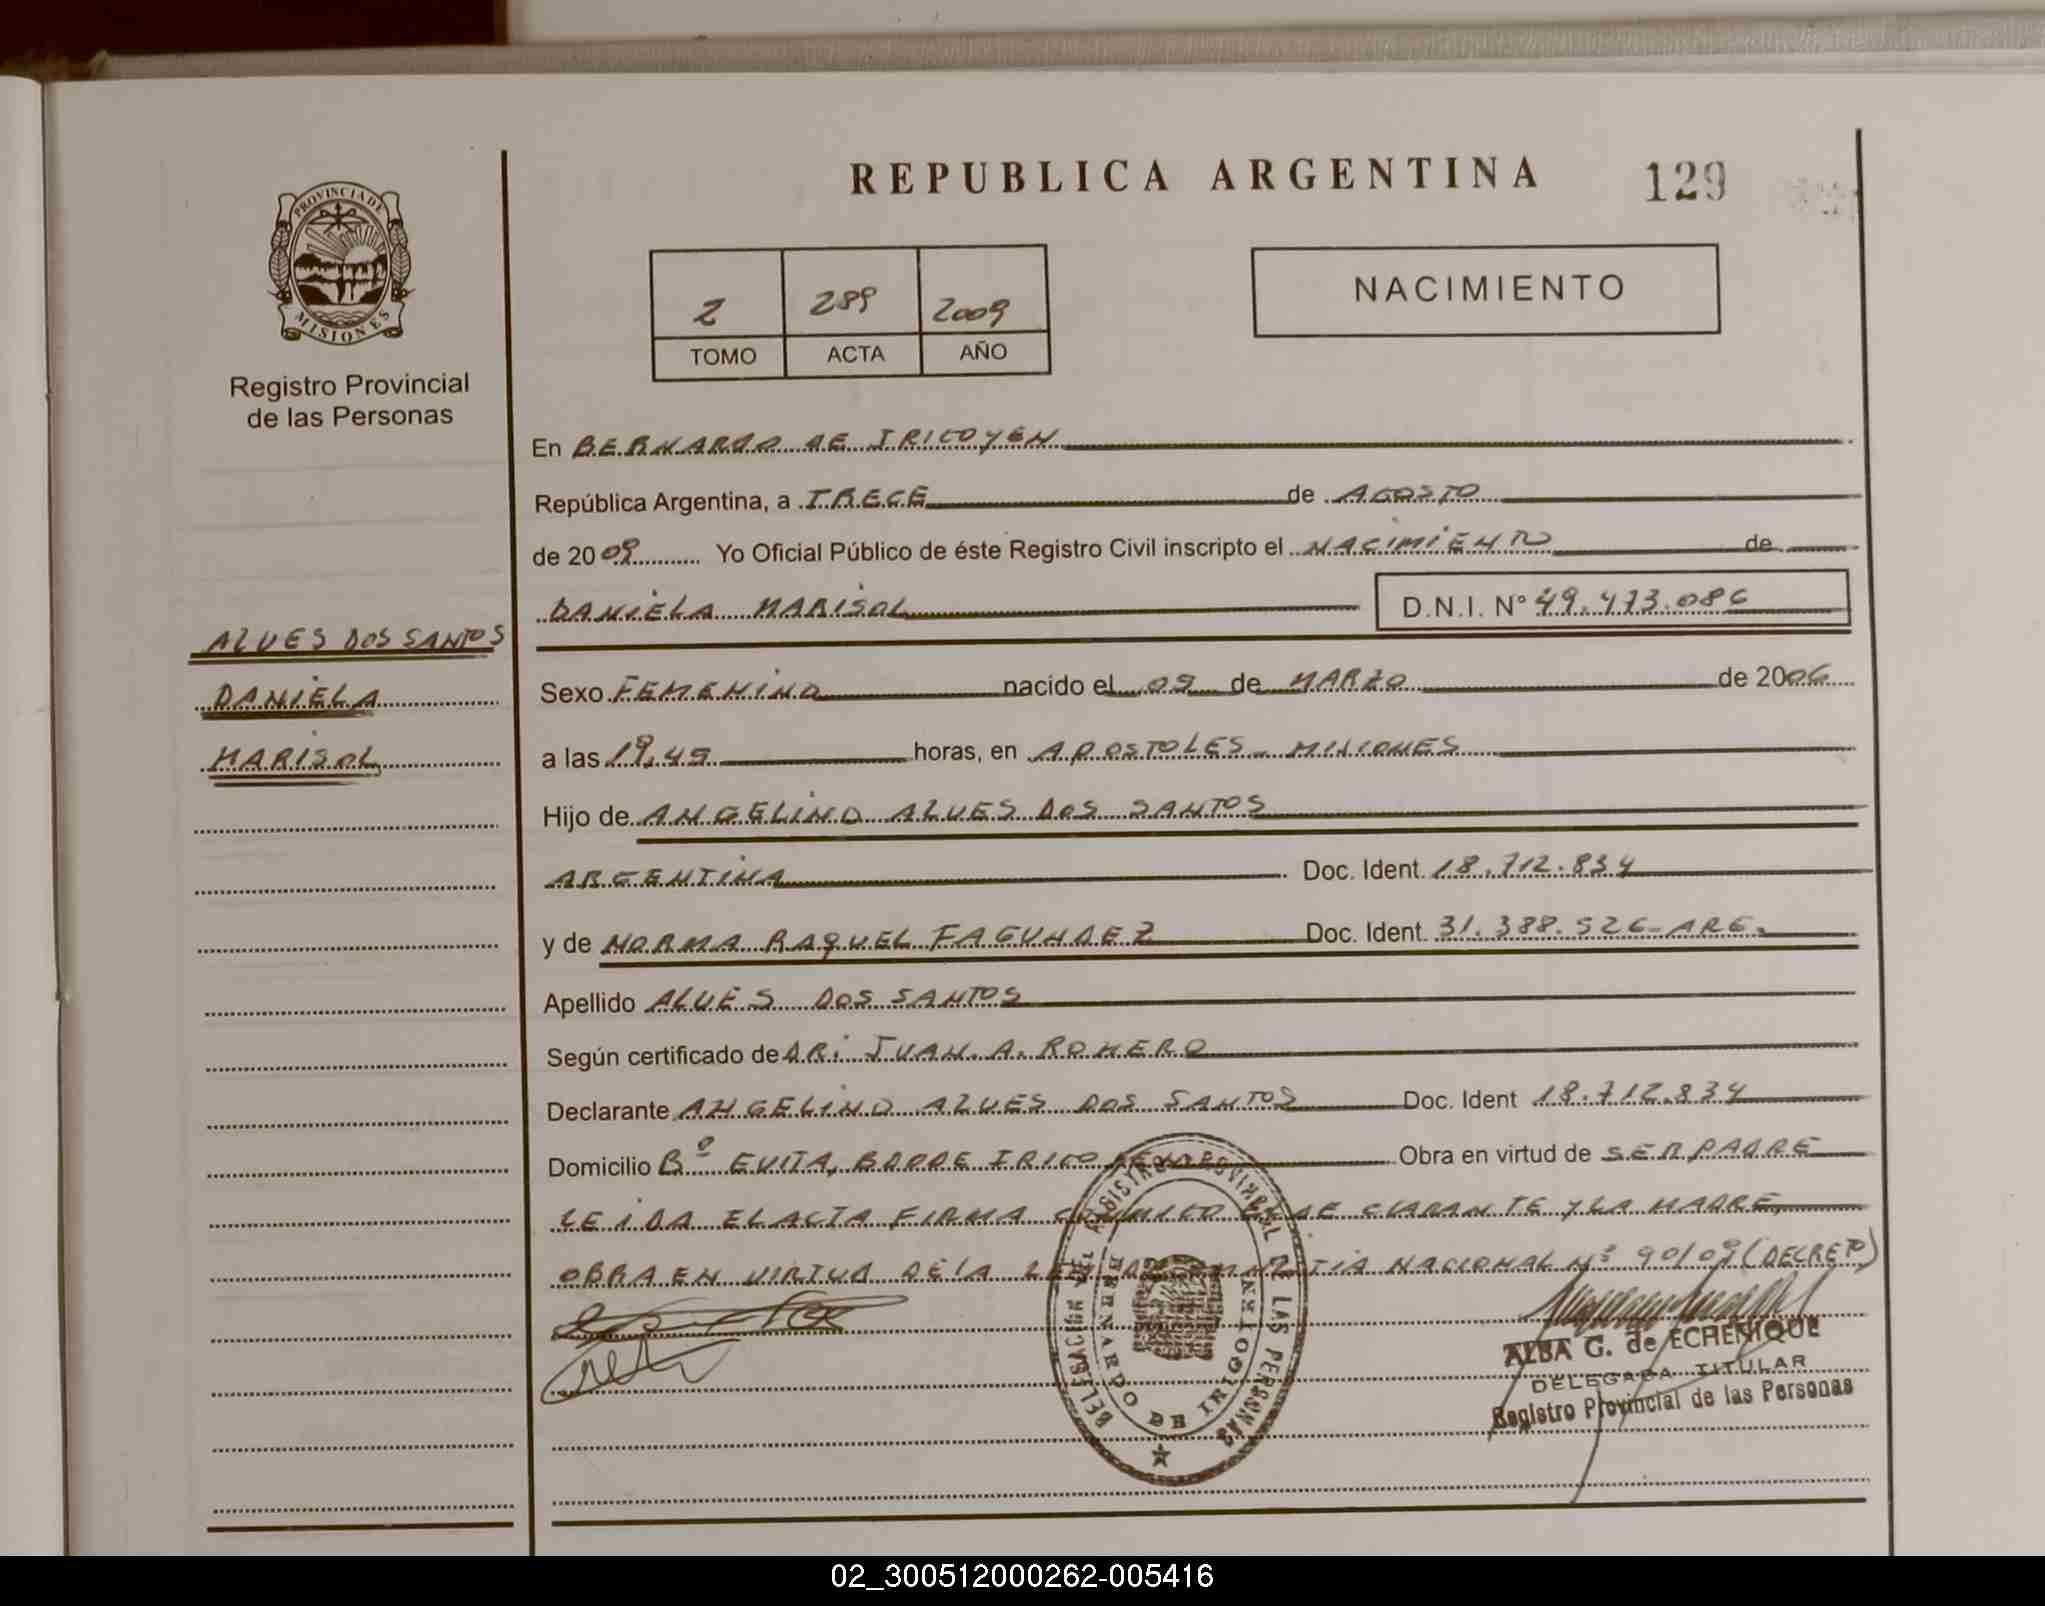 REPUBLICA ARGENTINA 129
PROVINCIA DE
MISIONES
Registro Provincial
de las Personas
2 289 2009
TOMO ACTA AÑO
NACIMIENTO
En BERNARDO DE IRIGOYEN
República Argentina, a TRECE de AGOSTO
de 2009 Yo Oficial Público de éste Registro Civil inscripto el NACIMIENTO de
DANIELA MARISOL D.N.I. Nº 49.473.086
ALVES DOS SANTOS
DANIELA
MARISOL
Sexo FEMENINO nacido el 09 de MARZO de 2006
a las 19,45 horas, en APOSTOLES - MISIONES
Hijo de ANGELINO ALVES DOS SANTOS
ARGENTINA Doc. Ident. 18.712.834
y de NORMA RAQUEL FAGUNDEZ Doc. Ident. 31.388.526 - ARG.
Apellido ALVES DOS SANTOS
Según certificado de DR: JUAN. A. ROMERO
Declarante ANGELINO ALVES DOS SANTOS Doc. Ident 18.712.834
Domicilio Bº EVITA, BDO DE IRIGOYEN Obra en virtud de SER PADRE
LEIDA EL ACTA FIRMA CONMIGO EL DECLARANTE Y LA MADRE
OBRA EN VIRTUD DE LA LEY DE AMNISTIA NACIONAL Nº 90/09 (DECRETO)
DELEGACION DEL REGISTRO PROVINCIAL DE LAS PERSONAS
BERNARDO DE IRIGOYEN
ALBA G. de ECHENIQUE
DELEGADA TITULAR
Registro Provincial de las Personas
02_300512000262-005416